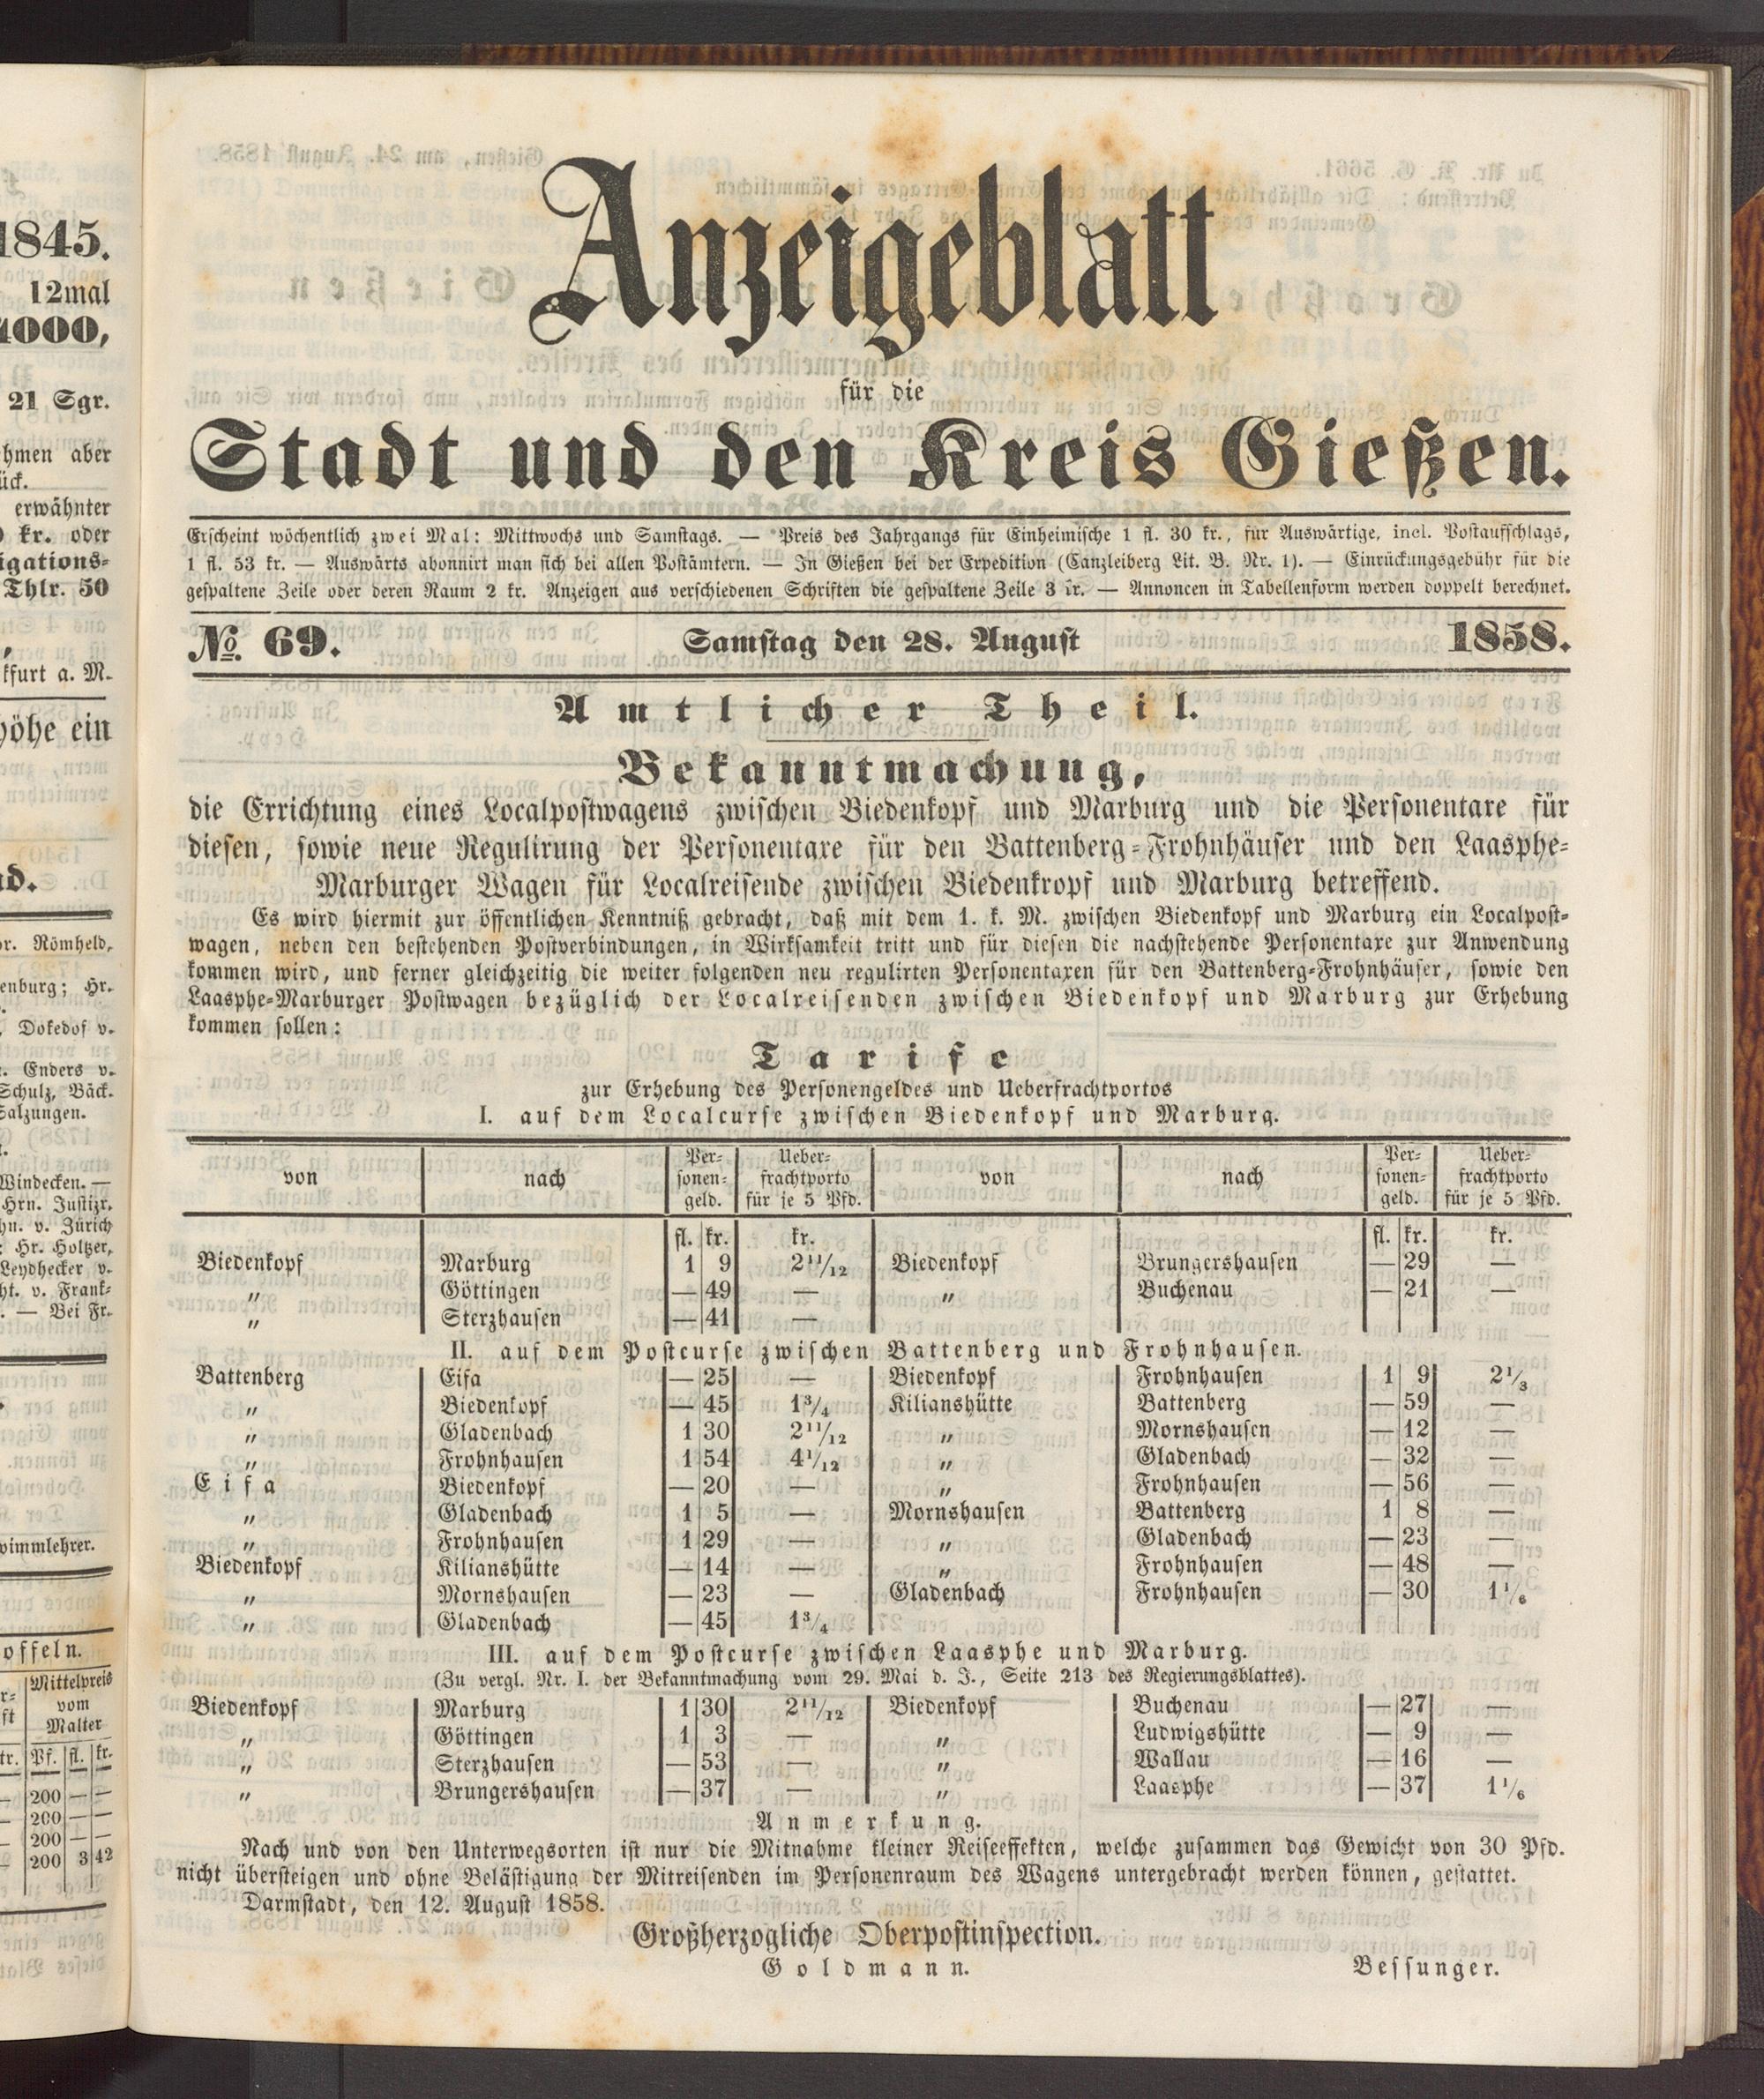 1845.
12mal
4000,
21 Sgr.
hmen aber
ück.
erwähnter
kr. oder
igations=
Thlr. 50
kfurt a. M.
höhe ein
nd.
or. Römheld,
enburg; Hr.
Dokedof v.
Enders v.
Schulz, Bäck.
Salzungen.
Windecken. —
Hrn. Justizr.
hn. v. Zürich
Hr. Holtzer,
Leydhecker v.
ht. v. Frank=
— Bei Fr.
wimmlehrer.
offeln.
Mittelpreis
vom
Malter
Pf. fl. kr.
200 — —
200 — —
200 — —
200 3 42
Anzeigeblatt
für die
Stadt und den Kreis Gießen.
Erscheint wöchentlich zwei Mal: Mittwochs und Samstags. — Preis des Jahrgangs für Einheimische 1 fl. 30 kr., für Auswärtige, incl. Postaufschlags,
1 fl. 53 kr. — Auswärts abonnirt man sich bei allen Postämtern. — In Gießen bei der Expedition (Canzleiberg Lit. B. Nr. 1). — Einrückungsgebühr für die
gespaltene Zeile oder deren Raum 2 kr. Anzeigen aus verschiedenen Schriften die gespaltene Zeile 3 kr. — Annoncen in Tabellenform werden doppelt berechnet.
No. 69. Samstag den 28. August 1858.
Amtlicher Theil.
Bekanntmachung,
die Errichtung eines Localpostwagens zwischen Biedenkopf und Marburg und die Personentaxe für
diesen, sowie neue Regulirung der Personentaxe für den Battenberg=Frohnhäuser und den Laasphe=
Marburger Wagen für Localreisende zwischen Biedenkropf und Marburg betreffend.
Es wird hiermit zur öffentlichen Kenntniß gebracht, daß mit dem 1. k. M. zwischen Biedenkopf und Marburg ein Localpost=
wagen, neben den bestehenden Postverbindungen, in Wirksamkeit tritt und für diesen die nachstehende Personentaxe zur Anwendung
kommen wird, und ferner gleichzeitig die weiter folgenden neu regulirten Personentaxen für den Battenberg=Frohnhäuser, sowie den
Laasphe=Marburger Postwagen bezüglich der Localreisenden zwischen Biedenkopf und Marburg zur Erhebung
kommen sollen:
Tarife
zur Erhebung des Personengeldes und Ueberfrachtportos
I. auf dem Localcurse zwischen Biedenkopf und Marburg.
von nach Per=sonen=geld. Ueber=frachtporto für je 5 Pfd. von nach Per=sonen=geld. Ueber=frachtporto für je 5 Pfd.
fl. kr. kr. fl. kr. kr.
Biedenkopf Marburg 1 9 2 11/12 Biedenkopf Brungershausen — 29 —
" Göttingen — 49 — " Buchenau — 21 —
" Sterzhausen — 41 —
II. auf dem Postcurse zwischen Battenberg und Frohnhausen.
Battenberg Eifa — 25 — Biedenkopf Frohnhausen 1 9 2 1/3
" Biedenkopf — 45 1 3/4 Kilianshütte Battenberg — 59 —
" Gladenbach 1 30 2 11/12 " Mornshausen — 12 —
" Frohnhausen 1 54 4 1/12 " Gladenbach — 32 —
Eifa Biedenkopf — 20 — " Frohnhausen — 56 —
" Gladenbach 1 5 — Mornshausen Battenberg 1 8 —
" Frohnhausen 1 29 — " Gladenbach — 23 —
Biedenkopf Kilianshütte — 14 — " Frohnhausen — 48 —
" Mornshausen — 23 — Gladenbach Frohnhausen — 30 1 1/6
" Gladenbach — 45 1 3/4
III. auf dem Postcurse zwischen Laasphe und Marburg.
(Zu vergl. Nr. I. der Bekanntmachung vom 29. Mai d. J., Seite 213 des Regierungsblattes).
Biedenkopf Marburg 1 30 2 11/12 Biedenkopf Buchenau — 27 —
" Göttingen 1 3 — " Ludwigshütte — 9 —
" Sterzhausen — 53 — " Wallau — 16 —
" Brungershausen — 37 — " Laasphe — 37 1 1/6
Anmerkung.
Nach und von den Unterwegsorten ist nur die Mitnahme kleiner Reiseeffekten, welche zusammen das Gewicht von 30 Pfd.
nicht übersteigen und ohne Belästigung der Mitreisenden im Personenraum des Wagens untergebracht werden können, gestattet.
Darmstadt, den 12. August 1858.
Großherzogliche Oberpostinspection.
Goldmann. Bessunger.